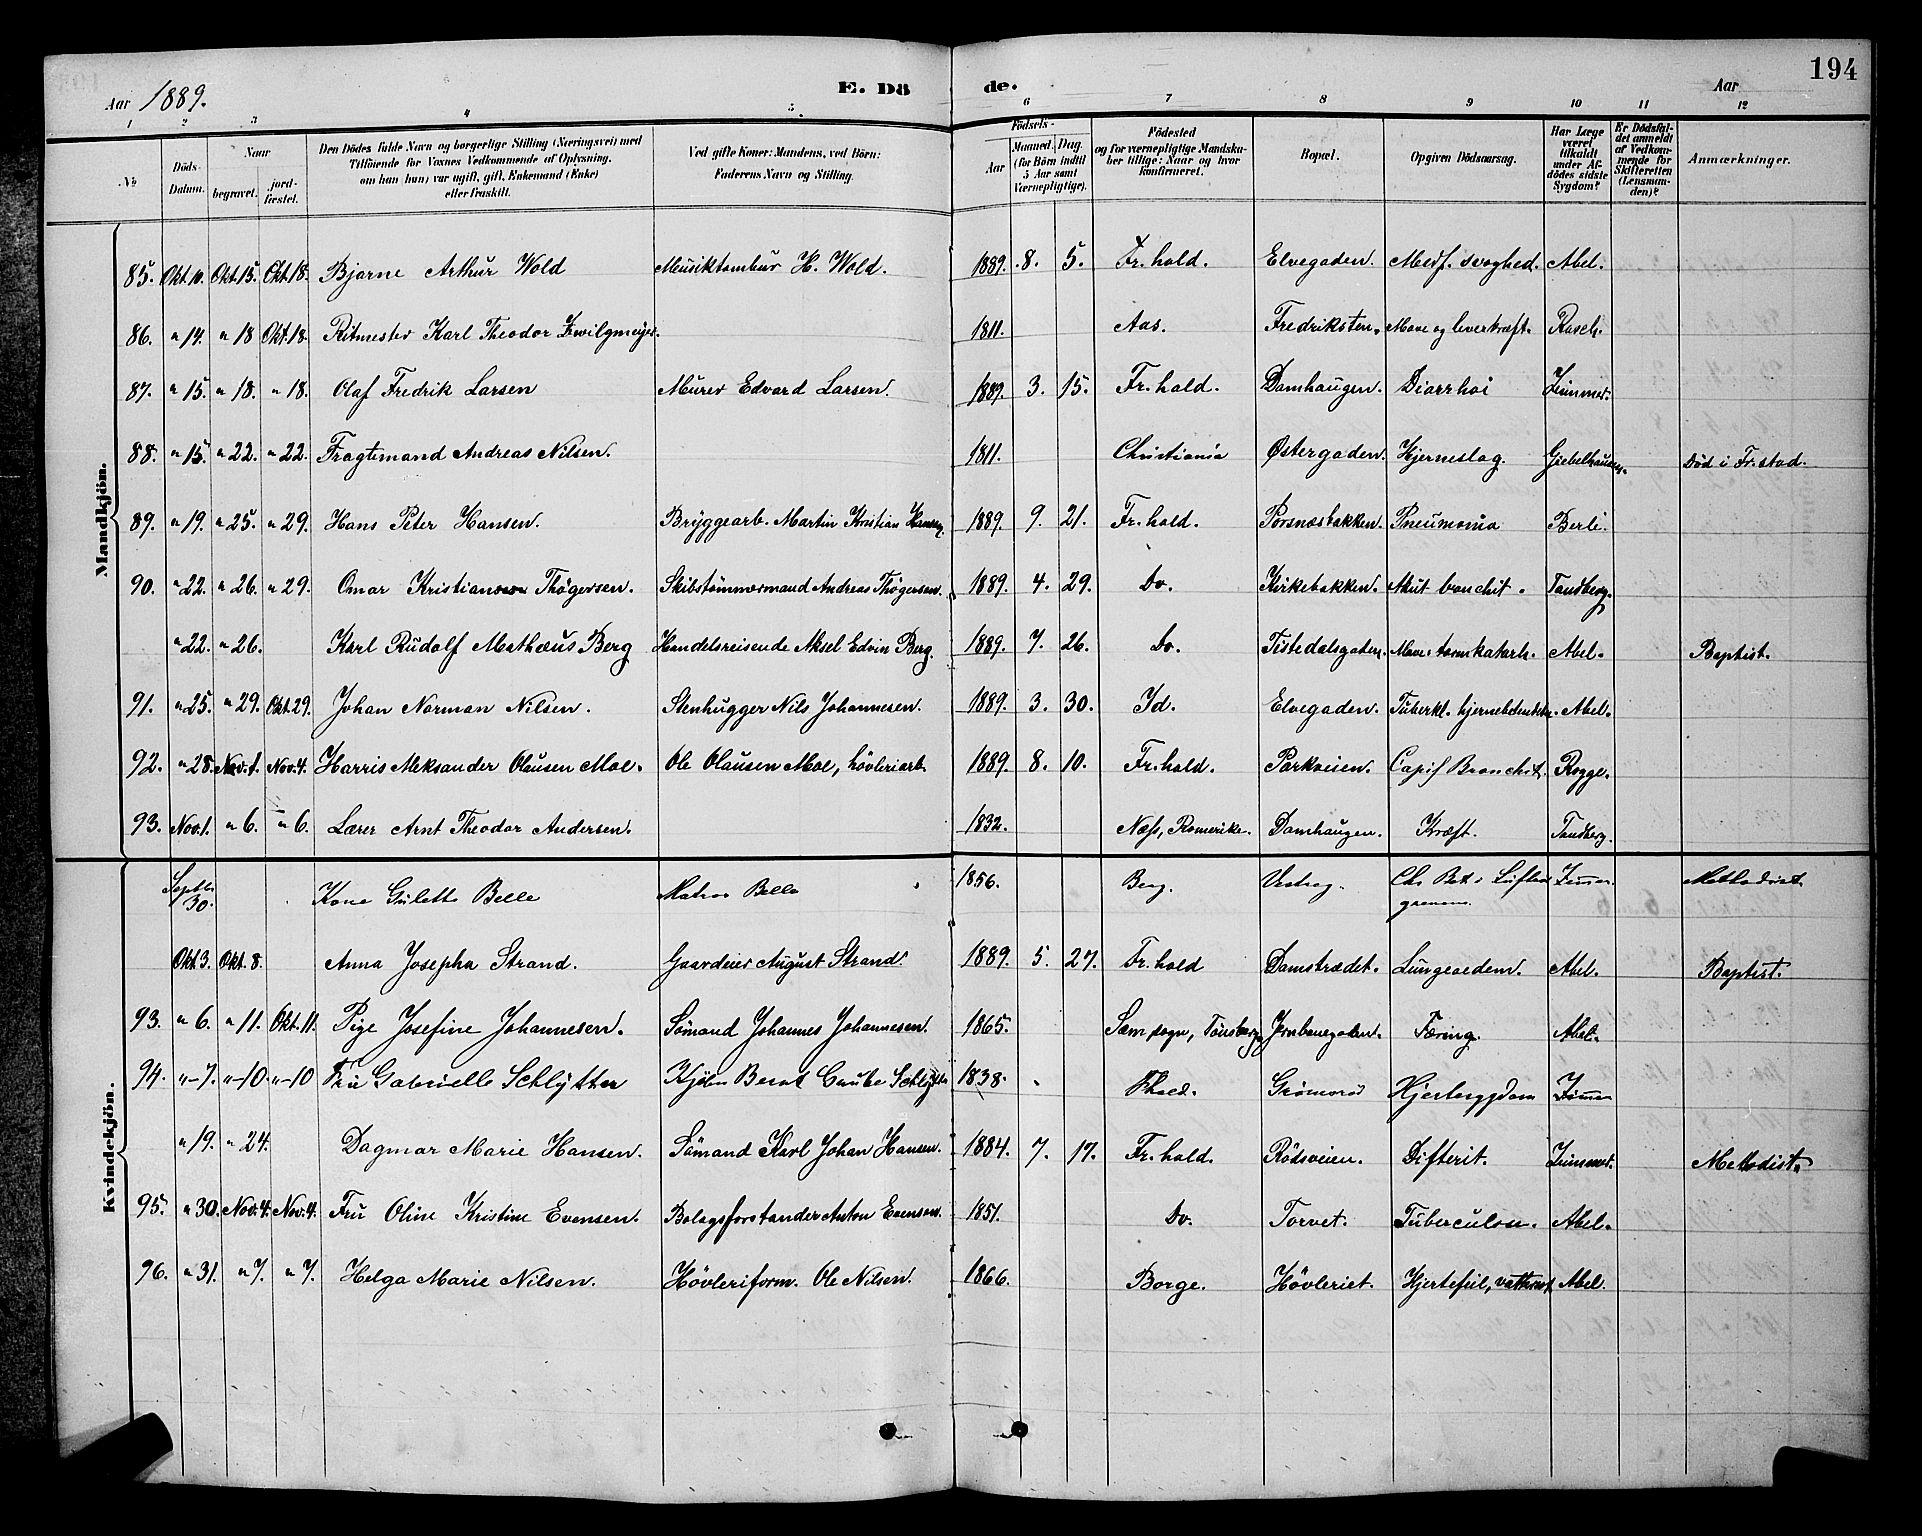 Aar 1889. E. Dö de. Aar 194
1 2 3 4 5 6 7 8 9 10 11 12
№ Döds-Datum. Naar begravet. jord-fæstet. Den Dödes fulde Navn og borgerlige Stilling (Næringsvei) med Tilföiende for Voxnes Vedkommende af Oplysning, om han (hun) var ugift, gift, Enkemand (Enke) eller fraskilt. Ved gifte Koner: Mandens, ved Börn: Faderens Navn og Stilling. Födsels- Aar Maaned. Dag. (for Börn indtil 5 Aar samt Værnepligtige). Födested og for værnepligtige Mandskaber tillige: Naar og hvor konfirmeret. Bopæl. Opgiven Dödsaarsag. Har Læge været tilkaldt under Afdödes sidste Sygdom? Er Dödsfaldet anmeldt af Vedkommende for Skifteretten (Lensmanden)? Anmærkninger.
Mandkjön.
85. Okt. 10. Okt. 15. Okt. 18. Bjarne Arthur Wold Musiktambur H. Wold. 1889. 8. 5. Fr.hald. Elvegaden. Medf. svaghed. Abel.
86. " 14. " 18 Okt. 18. Ritmester Karl Theodor Zwilgmeyer. 1811. Aas. Fredriksten. Mave og leverkræft. Rasch.
87. " 15. " 18. " 18. Olaf Fredrik Larsen Murer Edvard Larsen. 1889. 3. 15. Fr.hald. Damhaugen. Diarrhoi Zimmer.
88. " 15. " 22. " 22. Fragtemand Andreas Nilsen. 1811. Christiania Østergaden. Hjerneslag. Giebelhausen. Död i Fr.stad.
89. " 19. " 25. " 29. Hans Peter Hansen. Bryggearb. Martin Kristian Hansen. 1889. 9. 21. Fr.hald. Porsnæsbakken. Pneumonia Berli.
90. " 22. " 26. " 29. Omar Kristian Thøgersen. Skibstömmermand Andreas Thøgersen. 1889. 4. 29. Do. Kirkebakken. Akut bronchit. Tandberg.
" 22. " 26. Karl Rudolf Mathæus Berg Handelsreisende Aksel Edvin Berg. 1889. 7. 26. Do. Tistedalsgaden. Mave- tarmkatarh. Abel. Baptist.
91. " 25. " 29. Okt. 29. Johan Norman Nilsen. Stenhugger Nils Johannesen. 1889. 3. 30. Id. Elvegaden. Tuberkl. Abel.
92. " 28. Nov. 1. Nov. 4. Harris Aleksander Olausen Moe. Ole Olausen Moe, hövleriarb. 1889. 8. 10. Fr.hald. Parkveien. Capil Bronchit. Rogge.
93. Nov. 1. " 6. " 6. Lærer Arnt Theodor Andersen. 1832. Næs, Romerike. Damhaugen. Kræft. Tandberg.
Kvindekjön.
Septb. 30. Kone Gulette Belle Matros Belle 1856. Berg. Vestreg. Ch. Bet. i Luftrörsgrenene Zimmer Methodist
Okt. 3. Okt. 8. Anna Josepha Strand. Gaardeier August Strand. 1889. 5. 27. Fr.hald Damstrædet. Lungeødem. Abel. Baptist.
93. " 6. " 11. Okt. 11. Pige Josefine Johannesen. Sømand Johannes Johannesen. 1865. Sem sogn, Tönsberg Jernbanegaden. Tæring. Abel.
94. "-7. "-10. "-10 Fru Gabrielle Schlytter Kjøbm Bernt Schlytter 1838. Fhald. Grømerød Hjertesygdom Zimmer
" 19. " 24. Dagmar Marie Hansen. Sömand Karl Johan Hansen. 1884. 7. 17. Fr.hald. Rödsveien. Difterit. Zimmer. Metodist.
95. " 30. Nov. 4. Nov. 4. Fru Oline Kristine Evensen. Bolagsforstander Anton Evensen. 1851. Do. Torvet. Tuberculose. Abel.
96. " 31. " 7. " 7. Helga Marie Nilsen. Hövleriform. Ole Nilsen. 1866. Borge. Hövleriet. Hjertefeil, vattersot Abel.